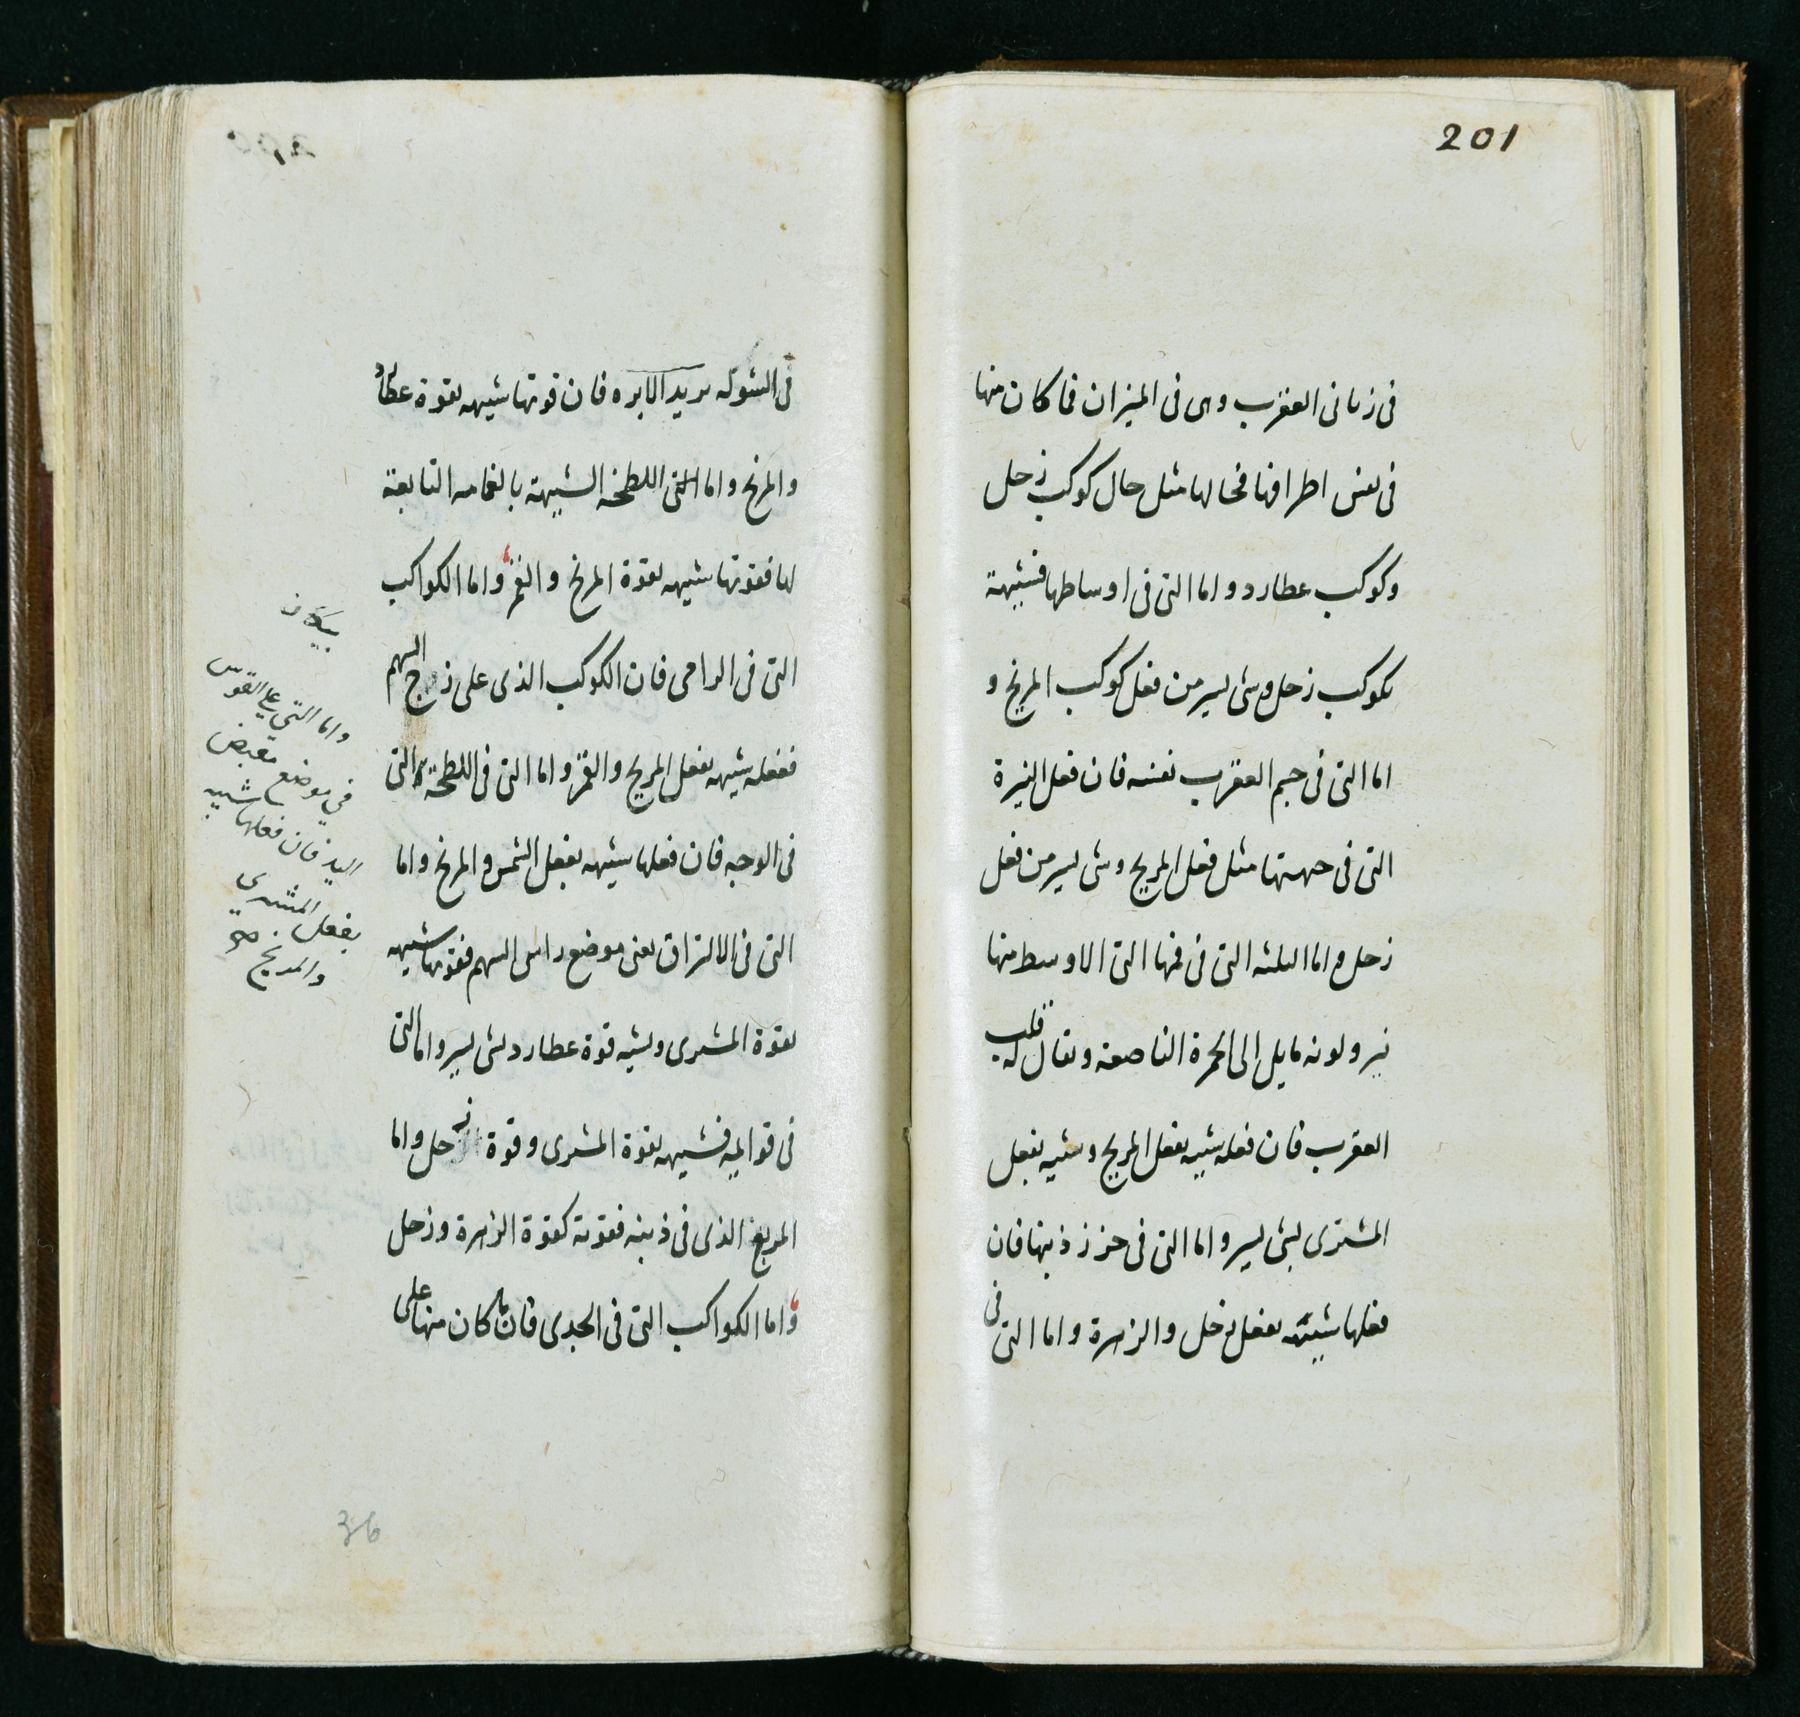 201
فى زبانى العقرب وهى فى الميزان فما كان منها
فى نفس اطرافها فحالها مثل حال كوكب زحل
وكوكب عطارد واما التى فى اوساطها فشبيهة
بكوكب زحل وشى يسير من فعل كوكب المريخ و
اما التى فى جسم العقرب نفسه فان فعل النيرة
التى فى جبهتها مثل فعل المريخ وشى يسير من فعل
زحل واما الثلثه التى فى فمها التى الاوسط منها
نير ولونه مايل الى الحمرة الناصعة ويقال له قلب
العقرب فان فعله شبيه بفعل المريخ وشبيه بفعل
المشترى بشى يسير واما التى فى خرز ذنبها فان
فعلها شبيه بفعل زحل والزهرة واما التى فى
فى الشوكه يريد الابره فان قوتها شبيهه بقوة عطارد
والمريخ واما التى اللطخة الشبيهة بالغمامه التابعة
لها فقوتها شبيهه بقوة المريخ والقمر واما الكواكب
التى فى الرامى فان الكوكب الذى على زج السهم
ففعله شبيهه بفعل المريخ والقمر واما التى فى اللطخة التى
فى الوجه فان فعلها شبيهه بفعل الشمس والمريخ واما
التى فى الالتزاق يعنى موضع راس السهم فقوتها شبيهه
بقوة المشترى وشبيه قوة عطارد بشى يسير واما التى
فى قوايمه فشبيهه بقوة المشترى وقوة زحل واما
المربع الذى فى ذنبه فقوته كقوة الزهرة وزحل
واما الكواكب التى فى الجدى فان ما كان منها على
پيكان
واما التي على القوس
في موضع مقبض
اليد فان فعلها شبيه
بفعل المشتري
والمريخ صح
36